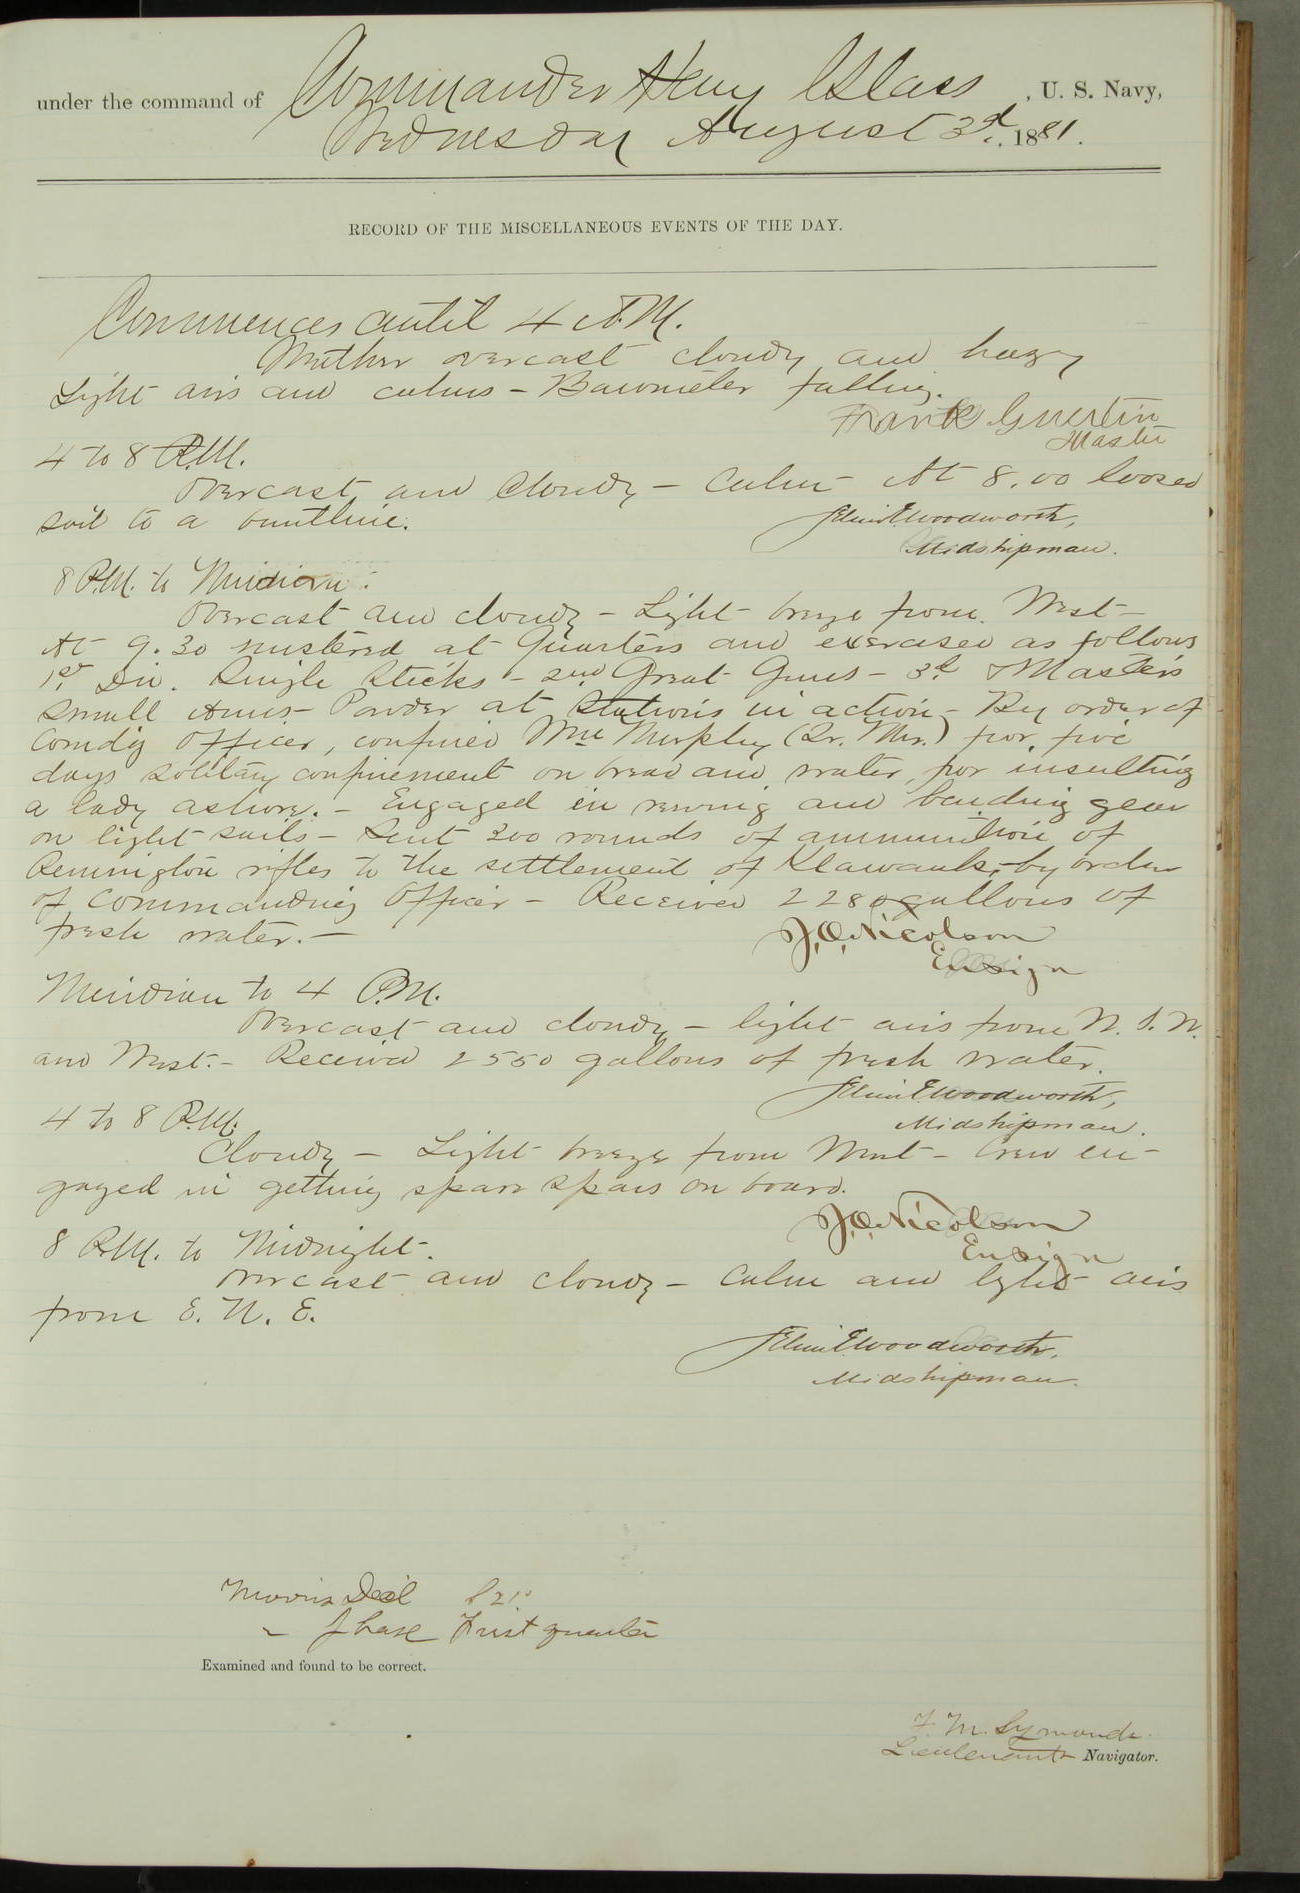 under the command of Commander Henry Glass, U. S. Navy,
Wednesday August 3d, 1881.
RECORD OF THE MISCELLANEOUS EVENTS OF THE DAY.
Commences until 4 A.M.
Weather overcast cloudy and hazy
Light airs and calms - Barometer falling.
Frank Guertin
Master
4 to 8 A.M.
Overcast and cloudy - Calm - At 8.00 loosed
sail to a buntline.
Selim E. Woodworth,
Midshipman.
8 A.M. to Meridian.
Overcast and cloudy - Light breeze from West -
At 9.30 mustered at Quarters and exercised as follows
1st Div. Single Sticks - 2nd Great Guns - 3d & Master's
Small Arms - Powder at stations in action - By order of
Comd'g Officer, confined Wm Murphy for five
days solitary confinement on bread and water, for insulting
a lady ashore. - Engaged in reeving and bending gear
on light sails - Sent 300 rounds of ammunition of
Remington rifles to the settlement of Klawack, by order
of Commanding Officer - Received 2280 gallons of
fresh water. -
J.O. Nicolson
Ensign
Meridian to 4 P.M.
Overcast and cloudy - light airs from N. N. W.
and West. - Received 2550 gallons of fresh water.
Selim E Woodworth,
Midshipman.
4 to 8 P.M.
Cloudy - Light breeze from West - Crew en-
gaged in getting spare spars on board.
J.O. Nicolson
Ensign
8 P.M. to Midnight.
Overcast and cloudy - Calm and light airs
from E. N. E.
Selim E Woodworth,
Midshipman.
Moon's Decl S 21°
" phase First quarter
Examined and found to be correct.
F. M. Symonds
Lieutenant Navigator.